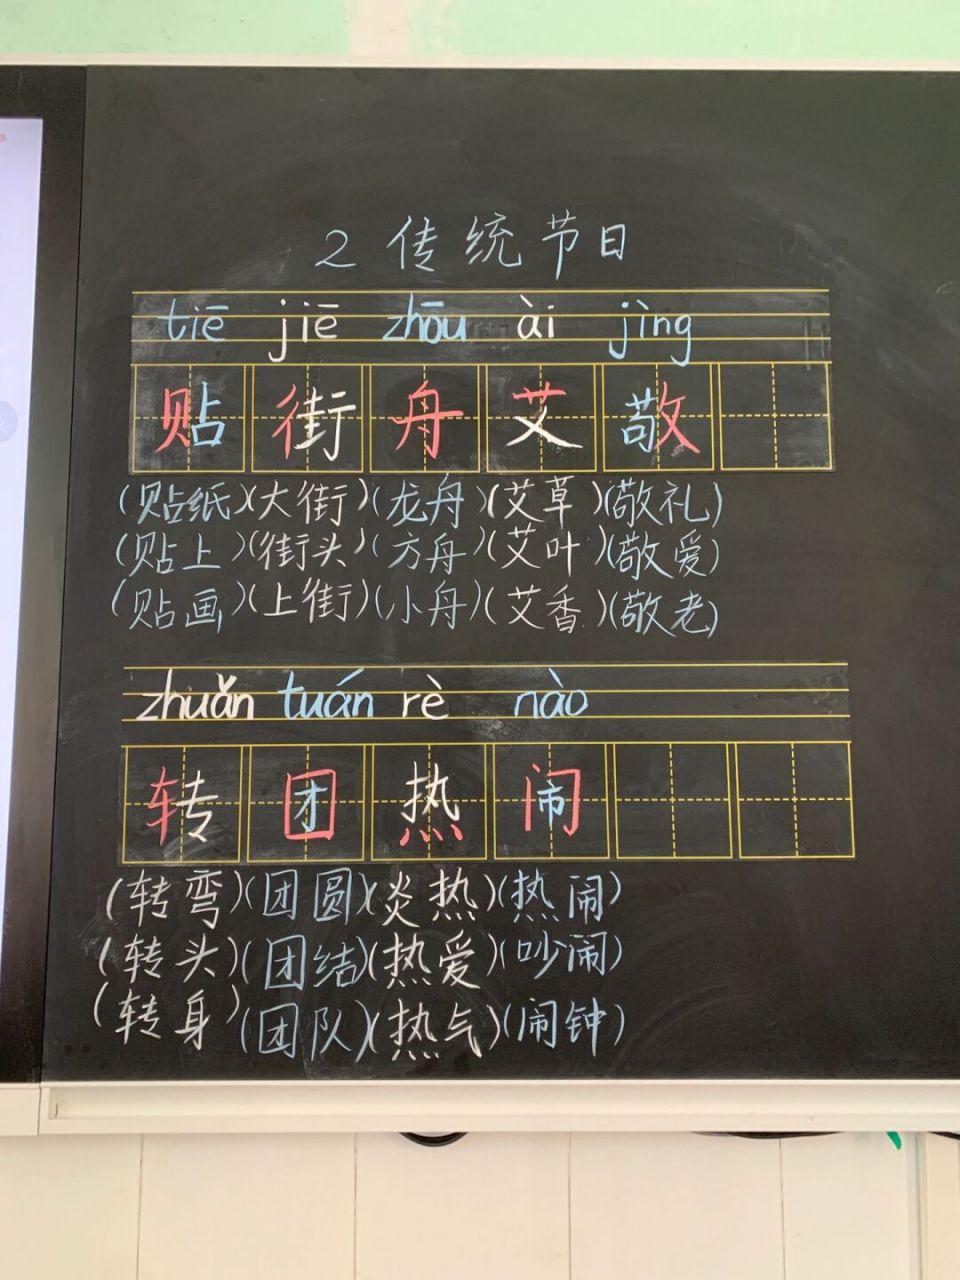 2 传统节日
tiē jiē zhōu ài jìng
贴 街 舟 艾 敬
(贴纸)(大街)(龙舟)(艾草)(敬礼)
(贴上)(街头)(方舟)(艾叶)(敬爱)
(贴画)(上街)(小舟)(艾香)(敬老)
zhuǎn tuán rè nào
转 团 热 闹
(转弯)(团圆)(炎热)(热闹)
(转头)(团结)(热爱)(吵闹)
(转身)(团队)(热气)(闹钟)